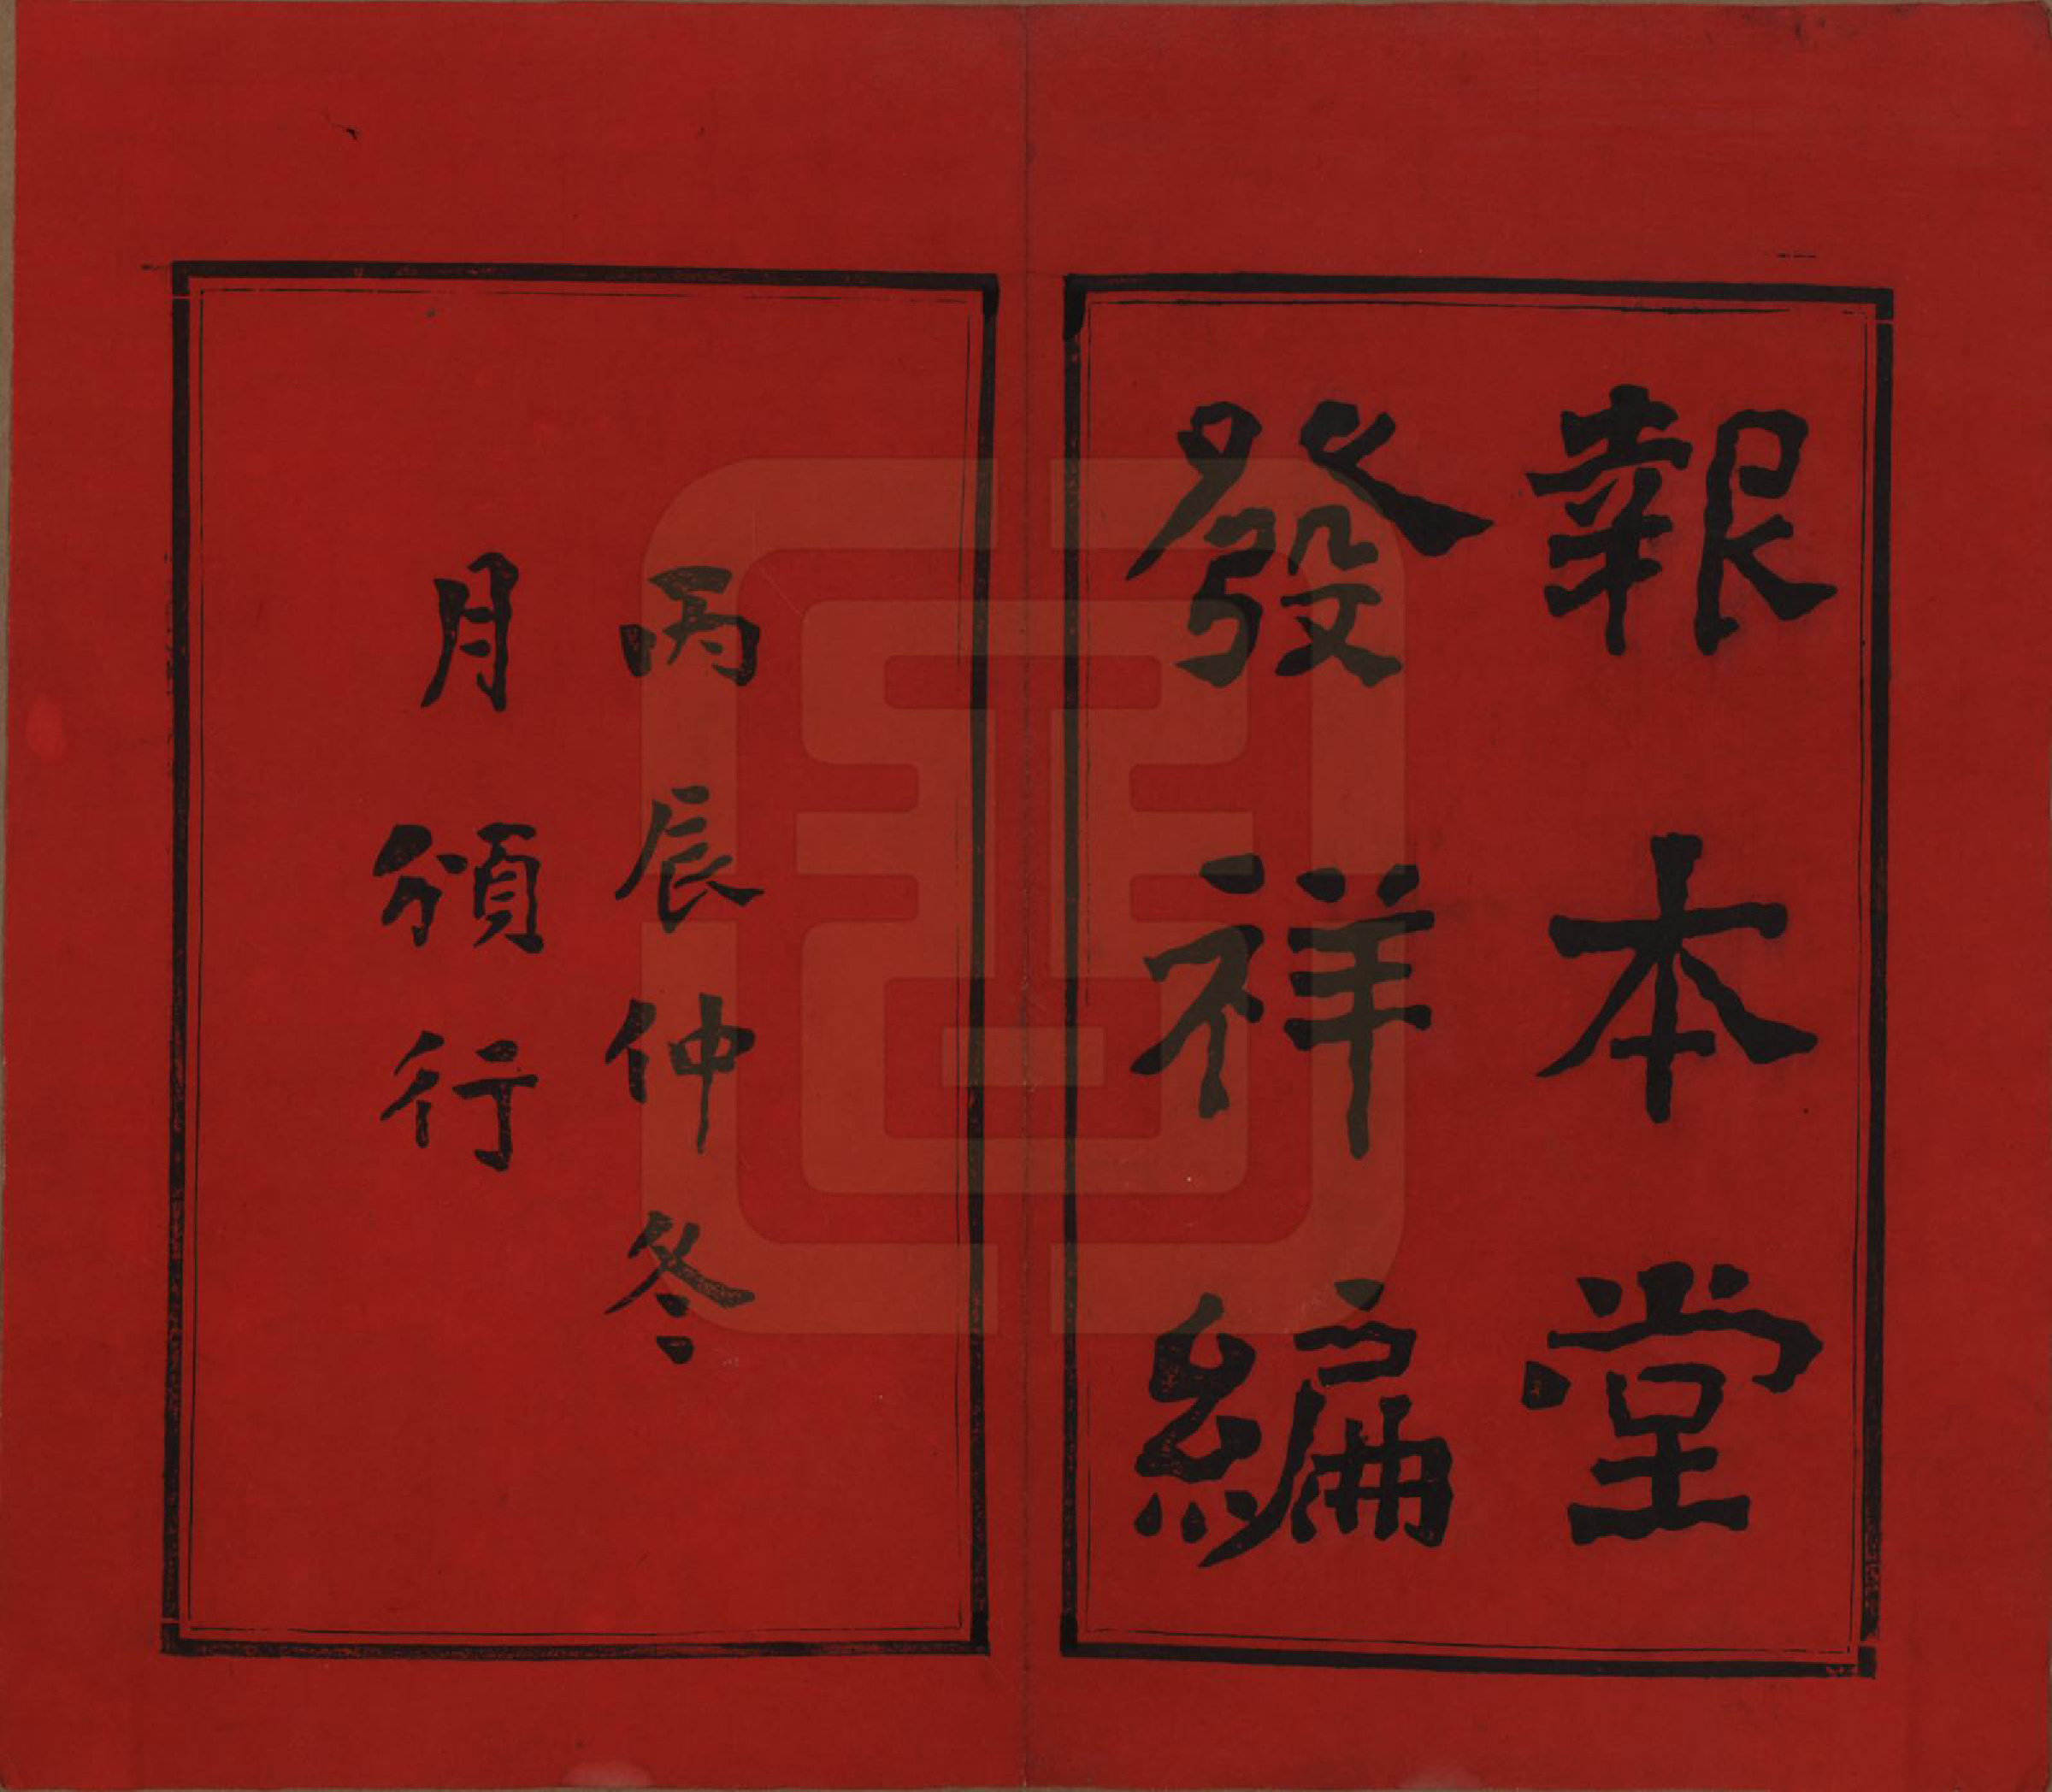 報本堂
發祥編
丙辰仲冬
月頒行